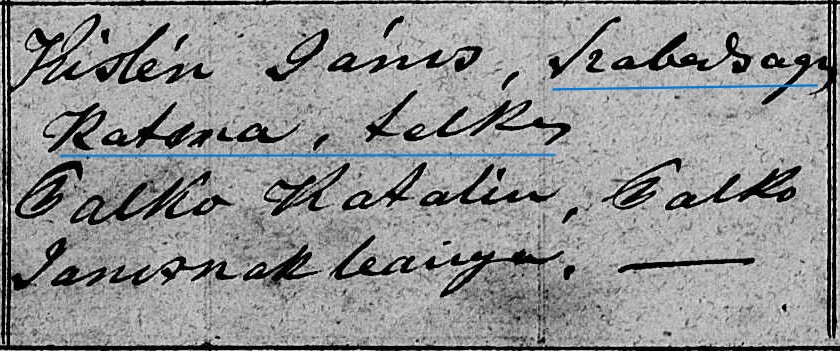 Kislén János, Szabadságy
Katona, telkes
Falko Katalin, Falko
Janosnak leánya. —